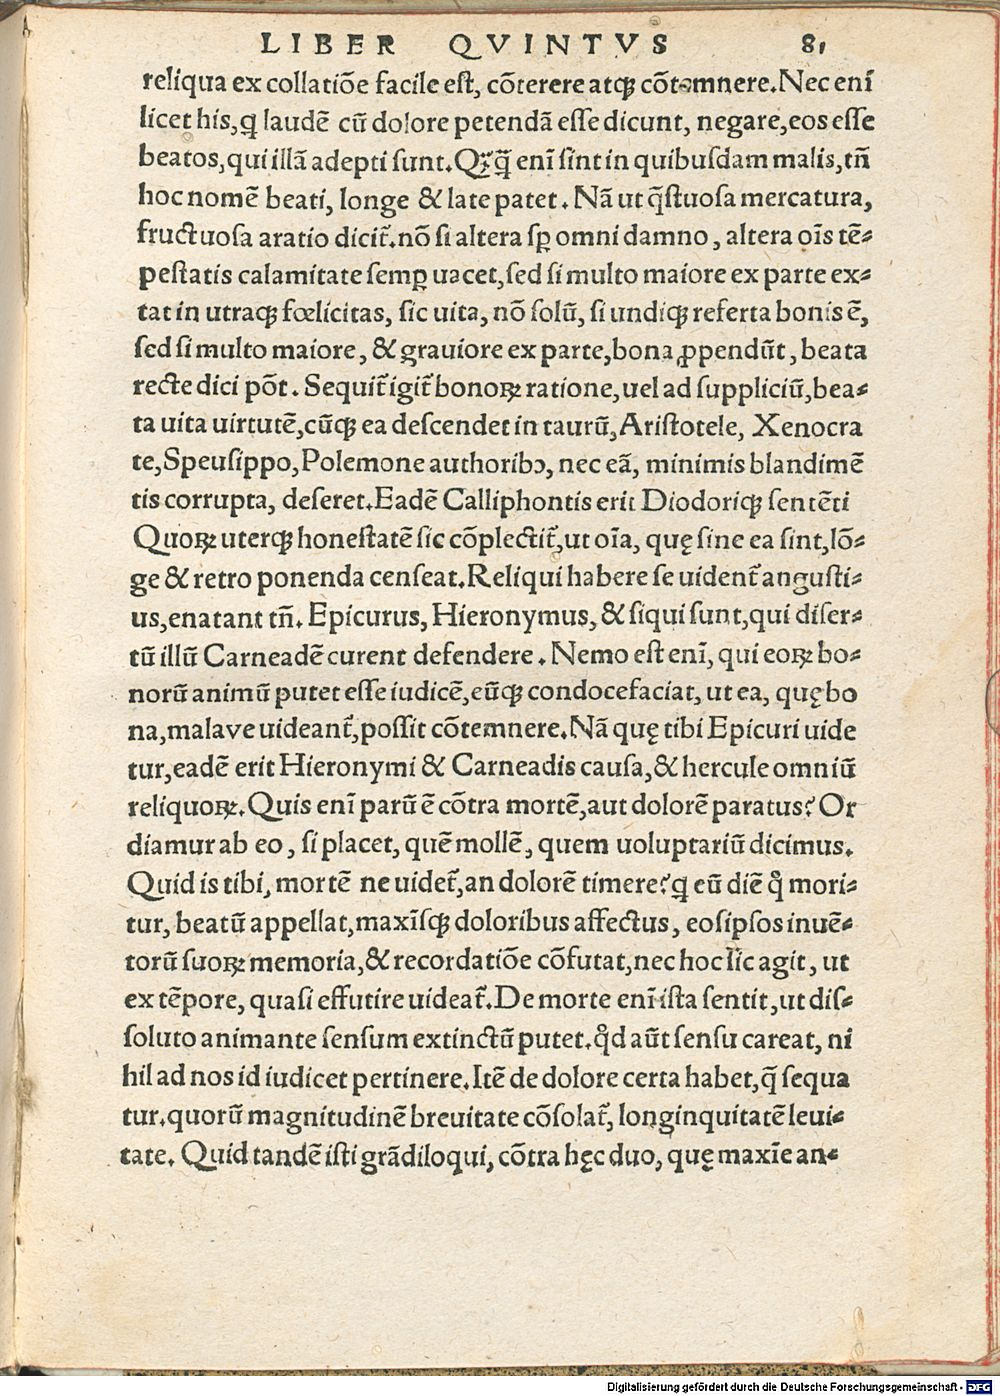 LIBER QVINTVS 81
reliqua ex collatiõe facile est, cõterere atqꝫ cõtemnere. Nec enĩ
licet his, ꝗ laudẽ cũ dolore petendã esse dicunt, negare, eos esse
beatos, qui illã adepti sunt. enĩ sint in quibusdam malis, tñ
hoc nomẽ beati, longe & late patet. Nã ut q̃stuosa mercatura,
fructuosa aratio dicit̃. nõ si altera sꝑ omni damno, altera oĩs tẽ-
pestatis calamitate semꝑ uacet, sed si multo maiore ex parte ex-
tat in utraqꝫ fœlicitas, sic uita, nõ solũ, si undiqꝫ referta bonis ẽ,
sed si multo maiore, & grauiore ex parte, bona ꝓpendũt, beata
recte dici põt. Sequit̃ igit̃ bonoꝝ ratione, uel ad suppliciũ, bea-
ta uita uirtutẽ, cũqꝫ ea descendet in taurũ, Aristotele, Xenocra
te, Speusippo, Polemone authoribꝰ, nec eã, minimis blandimẽ
tis corrupta, deseret. Eadẽ Calliphontis erit Diodoriqꝫ sentẽti
Quoꝝ uterqꝫ honestatẽ sic cõplectit̃, ut oĩa, quę sine ea sint, lõ-
ge & retro ponenda censeat. Reliqui habere se uident̃ angusti-
us, enatant tñ. Epicurus, Hieronymus, & siqui sunt, qui diser-
tũ illũ Carneadẽ curent defendere. Nemo est enĩ, qui eoꝝ bo-
norũ animũ putet esse iudicẽ, eũqꝫ condocefaciat, ut ea, quę bo
na, malave uideant̃, possit cõtemnere. Nã quę tibi Epicuri uide
tur, eadẽ erit Hieronymi & Carneadis causa, & hercule omniũ
reliquoꝝ. Quis enĩ parũ ẽ cõtra mortẽ, aut dolorẽ paratus? Or
diamur ab eo, si placet, quẽ mollẽ, quem uoluptariũ dicimus.
Quid is tibi, mortẽ ne uidet̃, an dolorẽ timere? ꝗ eũ diẽ qͦ mori-
tur, beatũ appellat, maxĩsqꝫ doloribus affectus, eos ipsos inuẽ-
torũ suoꝝ memoria, & recordatiõe cõfutat, nec hoc sic agit, ut
ex tẽpore, quasi effutire uideat̃. De morte enĩ ista sentit, ut dis-
soluto animante sensum extinctũ putet. qͦd aũt sensu careat, ni
hil ad nos id iudicet pertinere. Itẽ de dolore certa habet, q̃ sequa
tur. quorũ magnitudinẽ breuitate cõsolat̃, longinquitatẽ leui-
tate. Quid tandẽ isti grãdiloqui, cõtra hęc duo, quę maxĩe an-
Digitalisierung gefördert durch die Deutsche Forschungsgemeinschaft - DFG